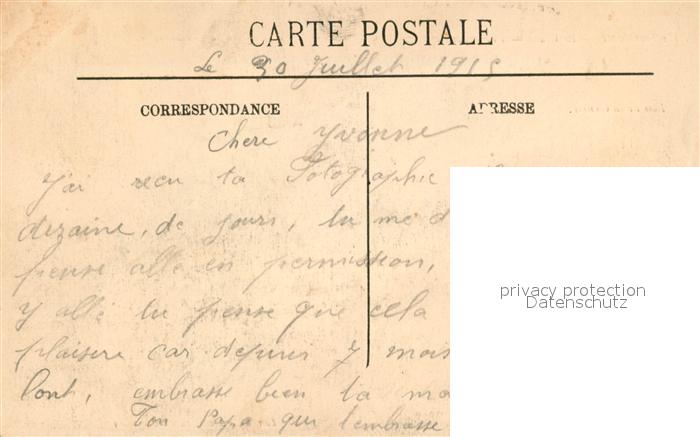 CARTE POSTALE
Le 30 Juillet 1915
CORRESPONDANCE
ADRESSE
Chere Yvonne
J'ai recu ta Fotographie
dizaine, de jours, tu me d
pense allé en permission,
y allé tu pense que cela
plaisere car depuis 7 mois
lont, embrasse bien ta ma
Ton Papa qui t'embrasse
privacy protection
Datenschutz